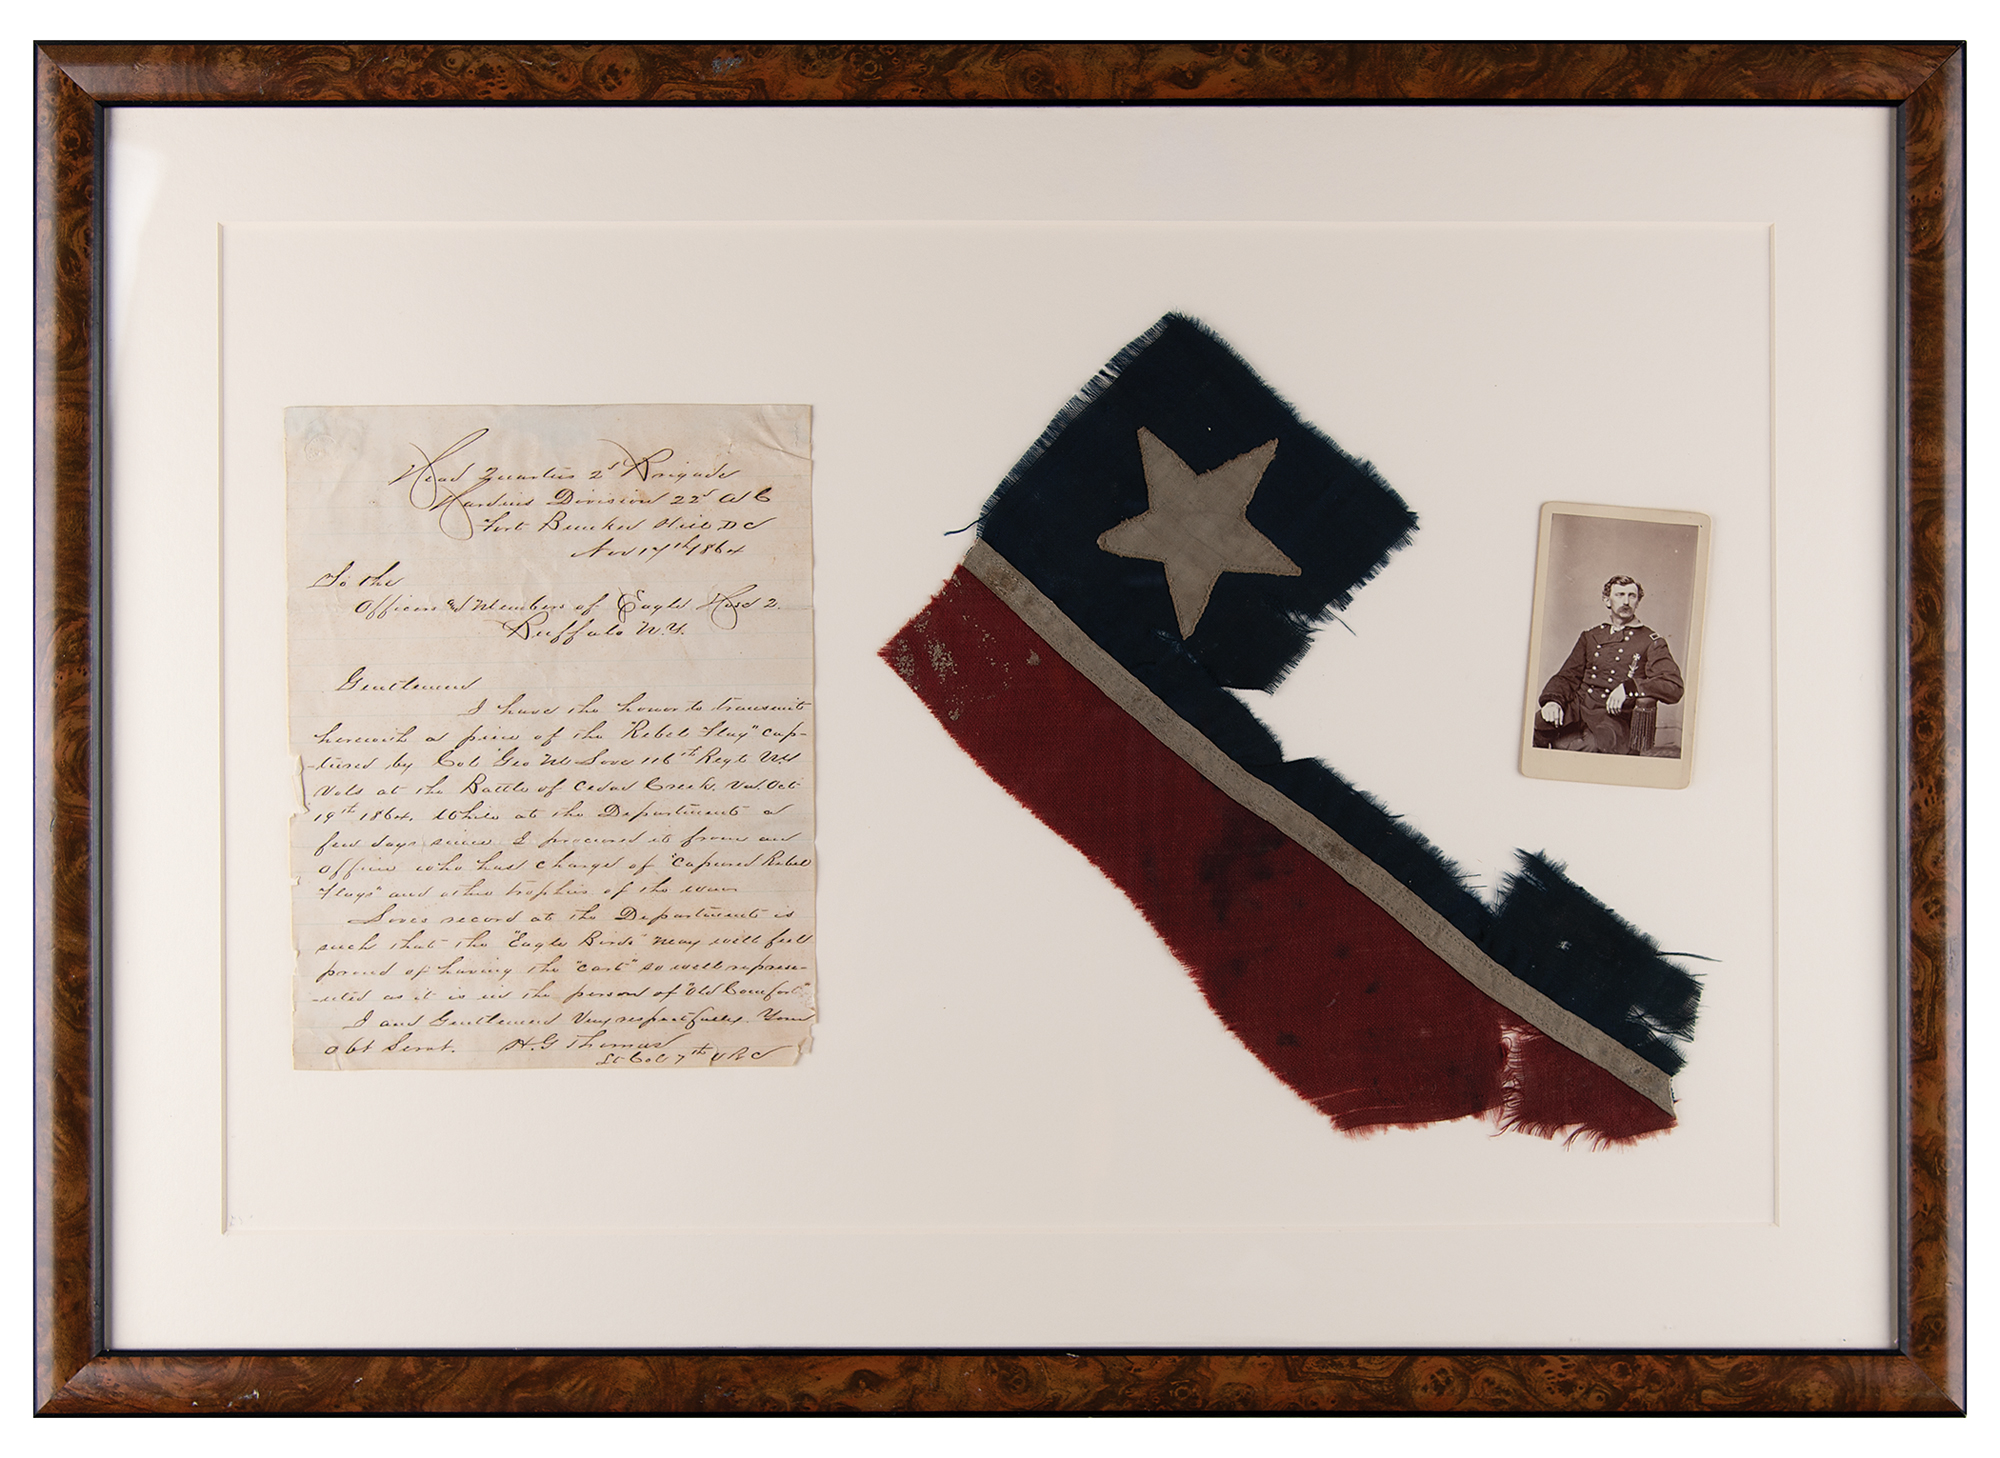 Head Quarters 2d Brigade
Hardins Division 22d A C
Fort Bunker Hill DC
Nov 17th 1864
To the
Officers and Members of Eagle Hose 2.
Buffalo N.Y.
Gentlemen
I have the honor to transmit
herewith a piece of the "Rebel Flag" cap-
-tured by Col Geo M Love 116th Regt NY
Vols at the Battle of Cedar Creek, Va. Oct
19th 1864. While at the Department a
few days since I procured it from an
officer who has charge of "Captured Rebel
Flags" and other trophies of the war
Loves record at the Department is
such that the "Eagle Birds" may well feel
proud of having the "cart" so well represe-
-nted as it is in the person of "Old Comfort"
I am Gentlemen Very respectfully Your
Obt Servt. H.G Thomas
Lt Col 7th VRC